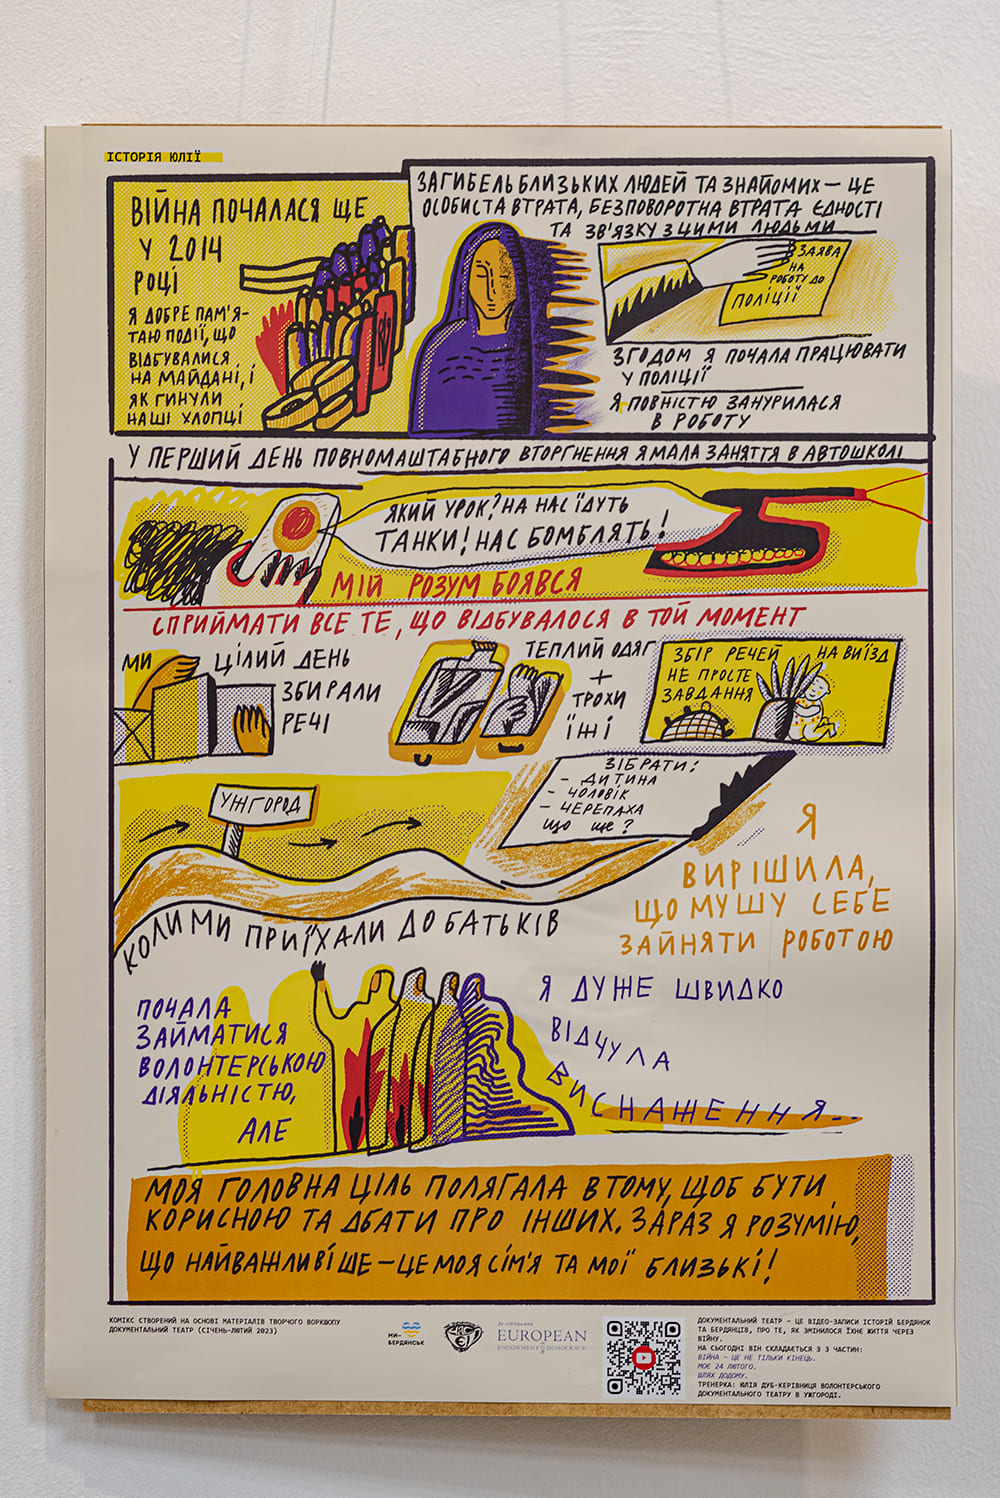 ІСТОРІЯ ЮЛІЇ
ВІЙНА ПОЧАЛАСЯ ЩЕ
У 2014
РОЦІ
Я ДОБРЕ ПАМ'Я-
ТАЮ ПОДІЇ, ЩО
ВІДБУВАЛИСЯ
НА МАЙДАНІ, І
ЯК ГИНУЛИ
НАШІ ХЛОПЦІ
ЗАГИБЕЛЬ БЛИЗЬКИХ ЛЮДЕЙ ТА ЗНАЙОМИХ — ЦЕ
ОСОБИСТА ВТРАТА, БЕЗПОВОРОТНА ВТРАТА ЄДНОСТІ
ТА ЗВ'ЯЗКУ З ЦИМИ ЛЮДЬМИ
ЗАЯВА
НА
РОБОТУ ДО
ПОЛІЦІЇ
ЗГОДОМ Я ПОЧАЛА ПРАЦЮВАТИ
У ПОЛІЦІЇ
Я ПОВНІСТЮ ЗАНУРИЛАСЯ
В РОБОТУ
У ПЕРШИЙ ДЕНЬ ПОВНОМАШТАБНОГО ВТОРГНЕННЯ Я МАЛА ЗАНЯТТЯ В АВТОШКОЛІ
ЯКИЙ УРОК? НА НАС ЇДУТЬ
ТАНКИ! НАС БОМБЛЯТЬ!
МІЙ РОЗУМ БОЯВСЯ
СПРИЙМАТИ ВСЕ ТЕ, ЩО ВІДБУВАЛОСЯ В ТОЙ МОМЕНТ
МИ ЦІЛИЙ ДЕНЬ
ЗБИРАЛИ
РЕЧІ
ТЕПЛИЙ ОДЯГ
+
ТРОХИ
ЇЖІ
ЗБІР РЕЧЕЙ НА ВИЇЗД
НЕ ПРОСТЕ
ЗАВДАННЯ
УЖГОРОД
ЗІБРАТИ:
- ДИТИНА
- ЧОЛОВІК
- ЧЕРЕПАХА
ЩО ЩЕ?
КОЛИ МИ ПРИЇХАЛИ ДО БАТЬКІВ
Я
ВИРІШИЛА,
ЩО МУШУ СЕБЕ
ЗАЙНЯТИ РОБОТОЮ
ПОЧАЛА
ЗАЙМАТИСЯ
ВОЛОНТЕРСЬКОЮ
ДІЯЛЬНІСТЮ,
АЛЕ
Я ДУЖЕ ШВИДКО
ВІДЧУЛА
ВИСНАЖЕННЯ...
МОЯ ГОЛОВНА ЦІЛЬ ПОЛЯГАЛА В ТОМУ, ЩОБ БУТИ
КОРИСНОЮ ТА ДБАТИ ПРО ІНШИХ. ЗАРАЗ Я РОЗУМІЮ,
ЩО НАЙВАЖЛИВІШЕ — ЦЕ МОЯ СІМ'Я ТА МОЇ БЛИЗЬКІ!
КОМІКС СТВОРЕНИЙ НА ОСНОВІ МАТЕРІАЛІВ ТВОРЧОГО ВОРКШОПУ
ДОКУМЕНТАЛЬНИЙ ТЕАТР (СІЧЕНЬ-ЛЮТИЙ 2023)
МИ-
БЕРДЯНСЬК
За підтримки
EUROPEAN
ENDOWMENT for DEMOCRACY
ДОКУМЕНТАЛЬНИЙ ТЕАТР - ЦЕ ВІДЕО-ЗАПИСИ ІСТОРІЙ БЕРДЯНОК
ТА БЕРДЯНЦІВ, ПРО ТЕ, ЯК ЗМІНИЛОСЯ ЇХНЄ ЖИТТЯ ЧЕРЕЗ
ВІЙНУ.
НА СЬОГОДНІ ВІН СКЛАДАЄТЬСЯ З 3 ЧАСТИН:
ВІЙНА - ЦЕ НЕ ТІЛЬКИ КІНЕЦЬ.
МОЄ 24 ЛЮТОГО.
ШЛЯХ ДОДОМУ.
ТРЕНЕРКА: ЮЛІЯ ДУБ-КЕРІВНИЦЯ ВОЛОНТЕРСЬКОГО
ДОКУМЕНТАЛЬНОГО ТЕАТРУ В УЖГОРОДІ.